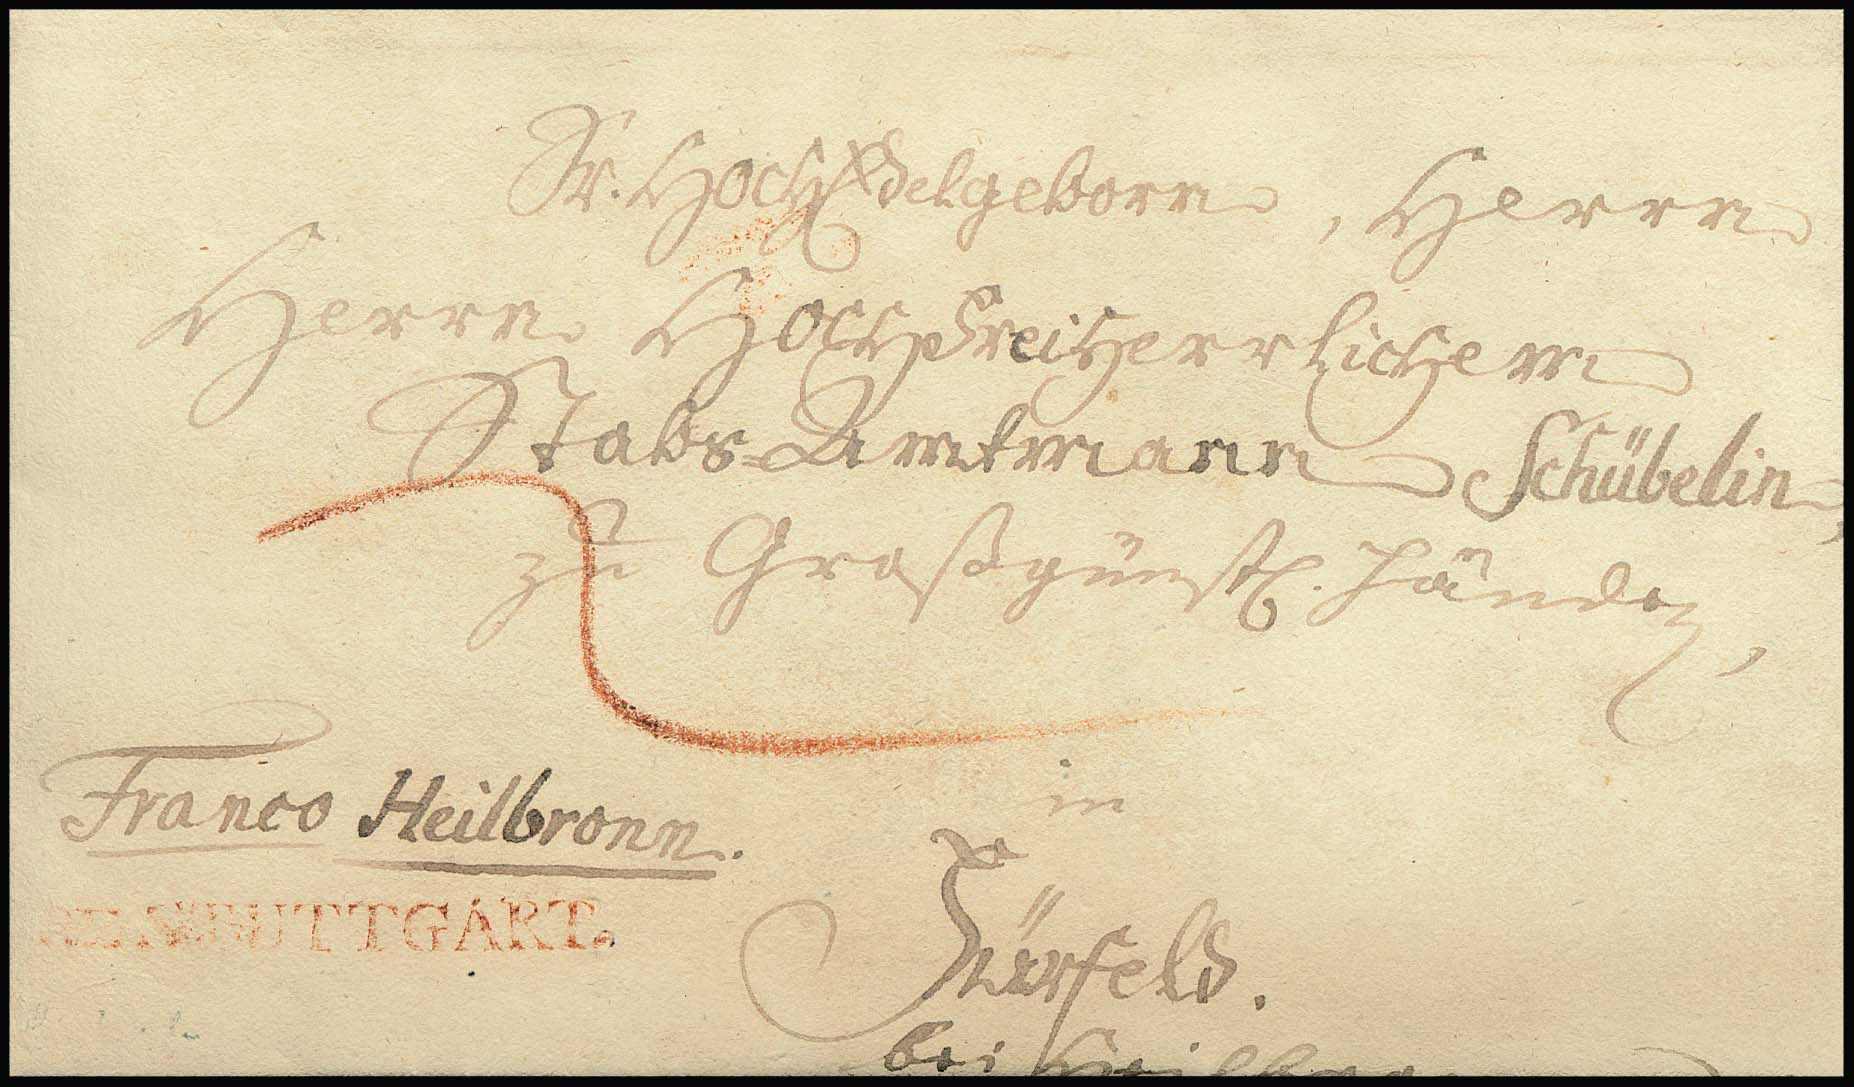 Sr. HochEdelgeborn, Herrn
Herrn HochFreiherrlichem
Stabs-Amtmann Schübelin,
zu Großgünstl. Händen,
in
Fürfeld.
bei Heilbronn
Franco Heilbronn.
STUTTGART.